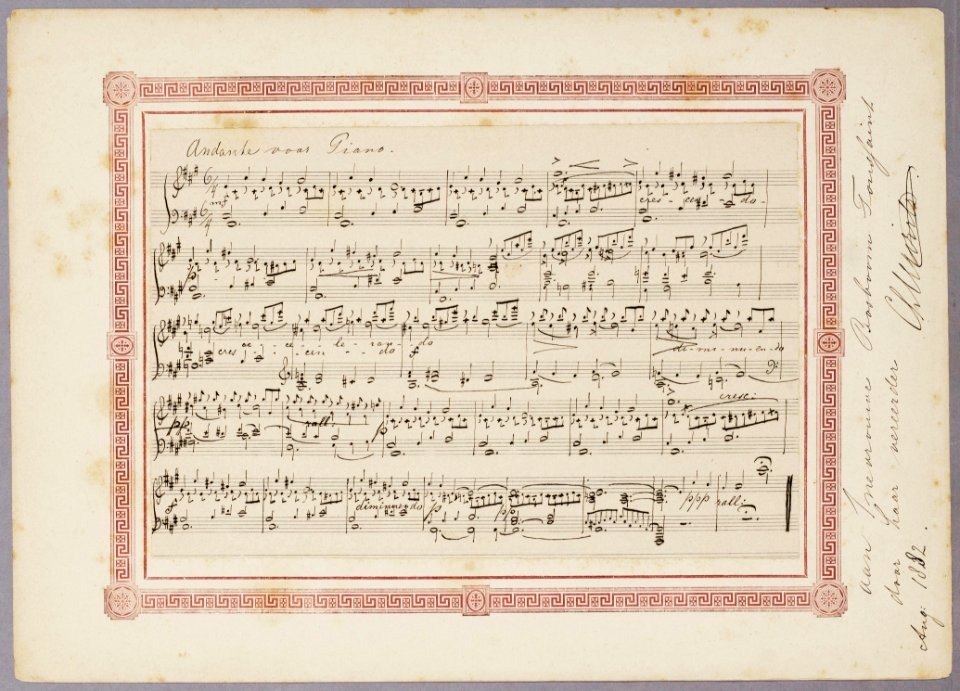 Andante voor Piano.
6/4 mf
6/4
cres - cen - do -
p
cres - cen - do
ac - ce - le - ran - do
di - mi - nu - en - do
pp rall: p cresc:
diminuendo p pp ppp rall:
aan Mevrouwe Bosboom Toussaint
door haar vereerder
Aug. 1882.